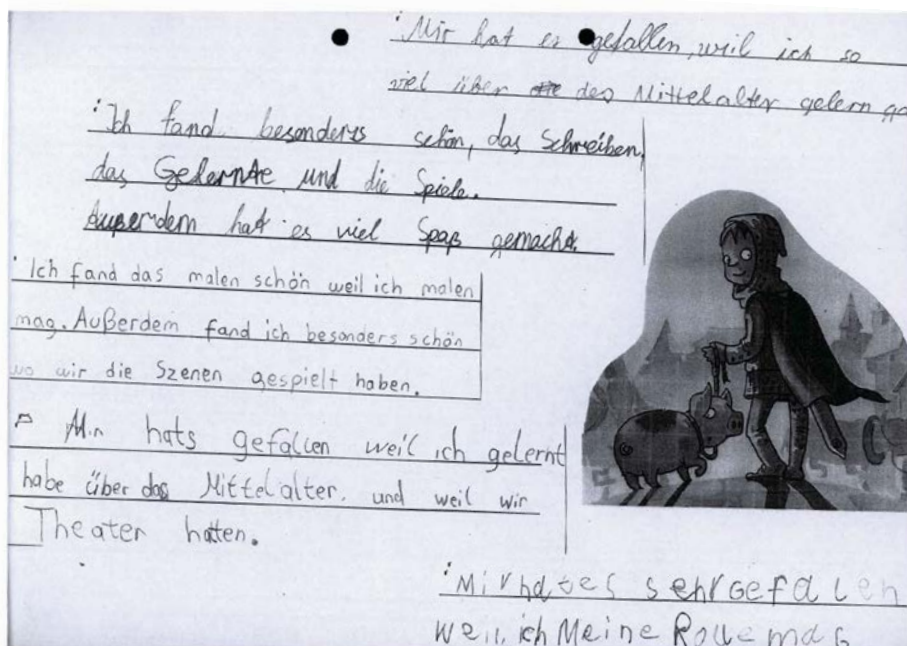 Mir hat es gefallen, weil ich so
viel über des Mittelalter gelern
Ich fand besonders schön, das Schreiben,
das Gelernte und die Spiele.
Außerdem hat es viel Spaß gemacht.
Ich fand das malen schön weil ich malen
mag. Außerdem fand ich besonders schön
wo wir die Szenen gespielt haben.
Mir hats gefallen weil ich gelernt
habe über das Mittelalter. und weil wir
Theater hatten.
Mir hat es sehr gefallen
weil ich Meine Rolle mag